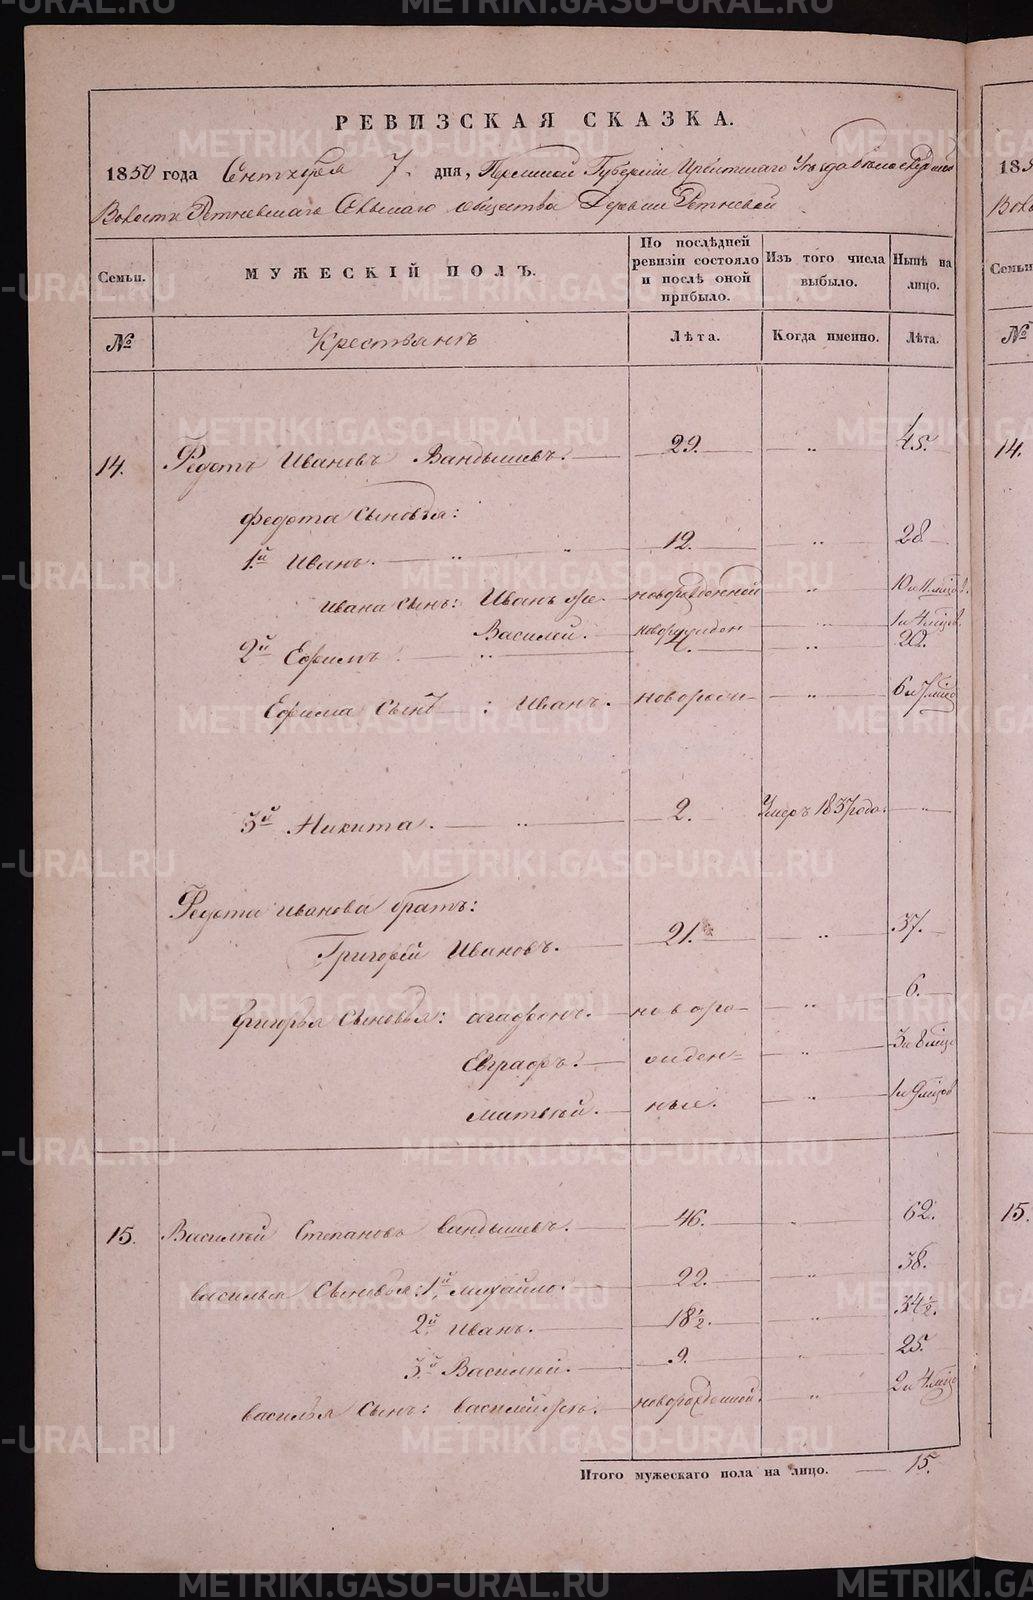 РЕВИЗСКАЯ СКАЗКА.
1850 года Сентября 7. дня, Пермской Губернiи Ирбитскаго Уѣзда Бѣлослудской
Волости Ретневскаго Сельскаго общества Деревни Ретневой
Семьи. МУЖЕСКIЙ ПОЛЪ. По послѣдней ревизiи состояло и послѣ оной прибыло. Изъ того числа выбыло. Нынѣ на лицо.
№ Крестьянъ Лѣта. Когда именно. Лѣта.
14. Федотъ Ивановъ Вандышевъ. 29. „ 45.
Федота Сыновья:
1й Иванъ. „ „ 12. „ 28.
Ивана Сынъ: Иванъ же. новорожденной „ 10 и 11 мѣсцов.
Василей. новорожден „ 1 и 4 мѣсцов.
2й Ефимъ „ 4. „ 20.
Ефима Сынъ: Иванъ. новорожден „ 6 и 7 мѣсцо
3й Никита. „ 2. Умеръ 1837 года. „
Федота Иванова братъ:
Григорей Ивановъ. 21. „ 37.
Григорья Сыновья: агафонъ. новоро- „ 6.
Евграфъ. жден= „ 3 и 8 мѣсц
матвѣй. ные. „ 1 и 9 мѣсцов
15. Василей Степановъ вандышевъ. 46. „ 62.
василья Сыновья: 1й михайло. 22. „ 38.
2й Иванъ. 18½. 34½.
3й Василей. 9. 25.
василья Сынъ: василей же. новорожденной. „ 2 и 4 мѣсц
Итого мужескаго пола на лицо. — 15.
185
Воло
Семьи
№
14.
15.
METRIKI.GASO-URAL.RU